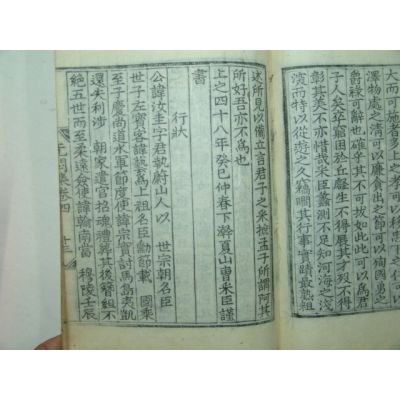 澤物處之淸可以廉貪出之節可以殉國勇之
爵祿可辭中也確乎其不可拔如此可以爲君
子人矣卒窮困於丘壑生不得展其才歿不得
彰其美不亦惜哉采臣蠡測不足知河海之淺
深而特以從遊之久竊瞷其行事實蹟最熟粗
述所見以備立言君子之采掇孟子所謂阿其
所好吾亦不爲也
上之四十八年癸巳仲春下澣夏山曺采臣謹
書
行狀
公諱汝圭字君執蔚山人以 世宗朝名臣
世子左賓客諱藝爲上祖名臣勳節載 國乘
至子慶尙道水軍節度使諱宗實討馬島夷凱
還失利涉 朝家遣官招魂禮葬其後簪組不
絶五世而至柔遠僉使諱翰南當 穆陵壬辰
集卷四